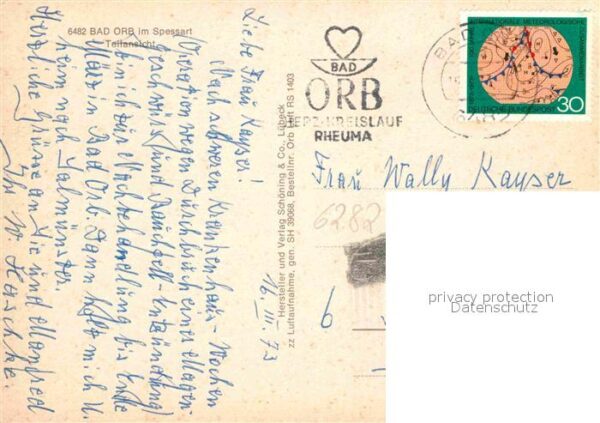 6482 BAD ORB im Spessart
Teilansicht
16. III. 73
Liebe Frau Kayser!
Nach schweren Krankenhaus-Wochen
(Operation wegen Durchbruch eines Magen-
Geschwürs und Bauchfell-Entzündung)
bin ich zur Nachbehandlung bis Ende
März in Bad Orb. Dann holt mich U.
heim nach Salmünster.
Herzliche Grüsse an Sie und Manfred
Ihr
Hersteller und Verlag Schöning & Co., Lübeck
zz Luftaufnahme, gen. SH 39068, Bestellnr. Orb RS 1403
BAD
ORB
HERZ-KREISLAUF
RHEUMA
BAD
INTERNATIONALE METEOROLOGISCHE
DEUTSCHE BUNDESPOST
30
Frau Wally Kayser
6282
6
privacy protection
Datenschutz